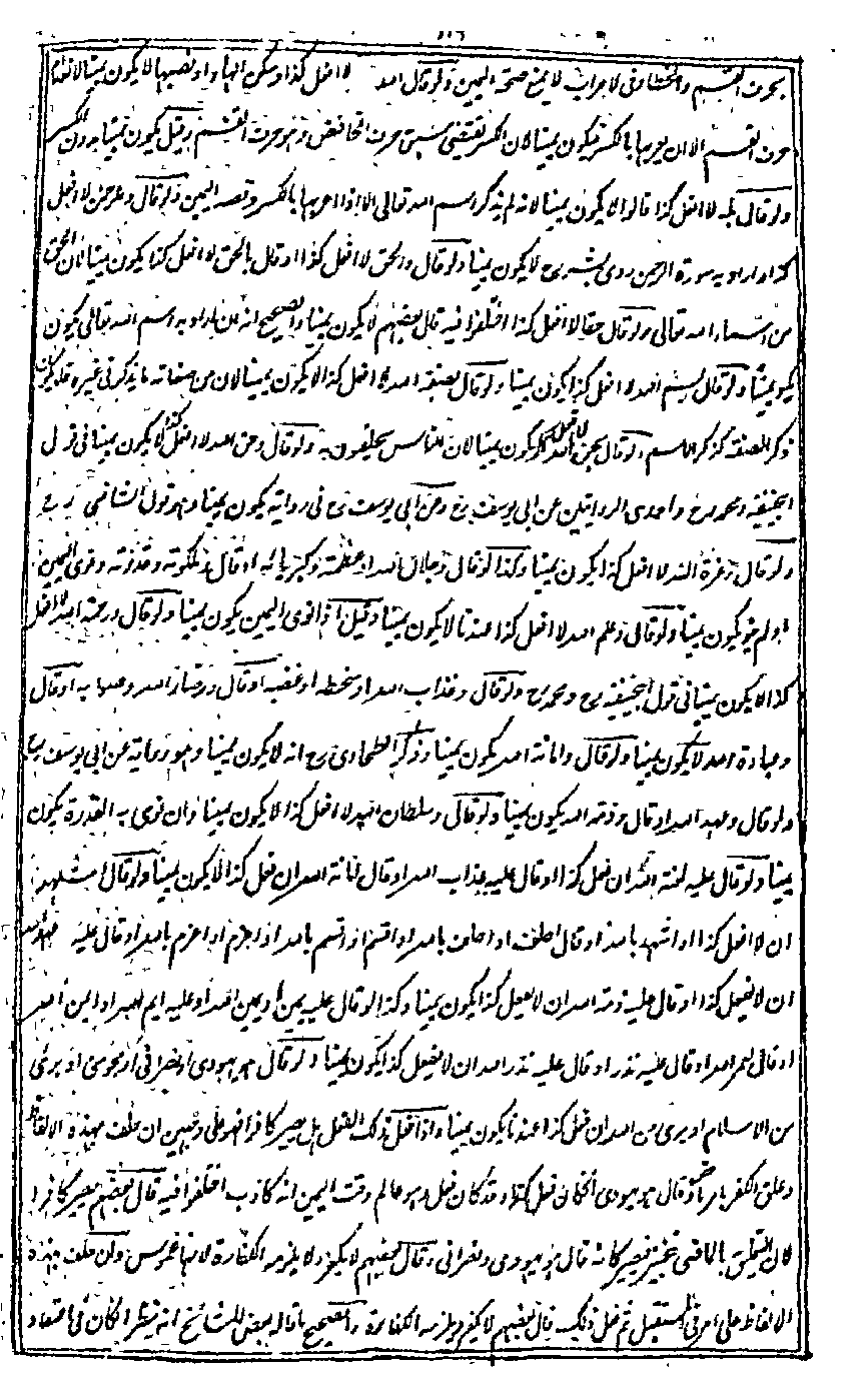 بحرف القسم والخطأ فى الاعراب لا يمنع صحة اليمين ولو قال الله لا افعل كذا وسكن الهاء او نصبها لا يكون يمينا لانعدام
حرف القسم الا ان يعربها بالكسر فيكون يمينا لان الكسر يقتضى سبق حرف الخافض وهو حرف القسم وقيل يكون يمينا بدون الكسر
ولو قال بله لا افعل كذا قالوا لا يكون يمينا لانه لم يذكر اسم الله تعالى الا اذا اعربها بالكسر وقصد اليمين ولو قال والرحمن لا افعل
كذا واراد به سورة الرحمن روى بشر رح لا يكون يمينا ولو قال والحق لا افعل كذا او قال بالحق لا افعل كذا يكون يمينا لان الحق
من اسماء الله تعالى ولو قال حقا لا افعل كذا اختلفوا فيه قال بعضهم لا يكون يمينا والصحيح انه ان اراد به اسم الله تعالى يكون
يمينا ولو قال بسم الله لا افعل كذا يكون يمينا ولو قال بصفة الله لا افعل كذا لا يكون يمينا لان من صفاته ما يذكر فى غيره فلا يكون
ذكر الصفة كذكر الاسم ولو قال بحق الله لا افعل كذا يكون يمينا لان الناس يحلفون به ولو قال وحق الله لا افعل كذا لا يكون يمينا فى قول
ابيحنيفة ومحمد رح واحدى الروايتين عن ابى يوسف رح وعن ابى يوسف رح فى رواية يكون يمينا وهو قول الشافعى رح
ولو قال وعزة الله لا افعل كذا يكون يمينا وكذا لو قال وجلال الله وعظمته وكبريائه او قال وملكوته وقدرته ونوى اليمين
او لم ينو يكون يمينا ولو قال وعلم الله لا افعل كذا عندنا لا يكون يمينا وقيل اذا نوى اليمين يكون يمينا ولو قال ورحمة الله لا افعل
كذا لا يكون يمينا فى قول ابيحنيفة رح ومحمد رح ولو قال وعذاب الله او سخطه او غضبه او قال ورضاء الله وثوابه او قال
وعبادة الله لا يكون يمينا ولو قال وامانة الله يكون يمينا وذكر الطحاوى رح انه لا يكون يمينا وهو رواية عن ابى يوسف رح
ولو قال وعهد الله او قال وذمة الله يكون يمينا ولو قال وسلطان الله لا افعل كذا لا يكون يمينا وان نوى به القدرة يكون
يمينا ولو قال عليه لعنة الله ان فعل كذا او قال عليه عذاب الله او قال امانة الله ان فعل كذا لا يكون يمينا ولو قال اشهد
ان لا افعل كذا او اشهد بالله او قال احلف او احلف بالله او اقسم او اقسم بالله او اعزم او اعزم بالله او قال عليه عهد الله
ان لا يفعل كذا او قال عليه ذمة الله ان لا يفعل كذا يكون يمينا وكذا لو قال عليه يمين او يمين الله او عليه ايم الله او ايمن الله
او قال لعمر الله او قال عليه نذر او قال عليه نذر الله ان لا يفعل كذا يكون يمينا ولو قال هو يهودى او نصرانى او مجوسى او برئ
من الاسلام او برئ من الله ان فعل كذا عندنا يكون يمينا واذا فعل ذلك الفعل هل يصير كافرا فهو على وجهين ان حلف بهذه الالفاظ
وعلق الكفر بامر ماض وقال هو يهودى ان كان فعل كذا وقد كان فعل وهو عالم وقت اليمين انه كاذب اختلفوا فيه قال بعضهم يصير كافرا
لان التعليق بالماضى تنجيز فيصير كانه قال هو يهودى ونصرانى وقال بعضهم لا يكفر ولا يلزمه الكفارة لانها غموس وان حلف بهذه
الالفاظ على امر فى المستقبل ثم فعل ذلك قال بعضهم لا يكفر ويلزمه الكفارة والصحيح ما قاله بعض المشائخ انه ينظر ان كان فى اعتقاد